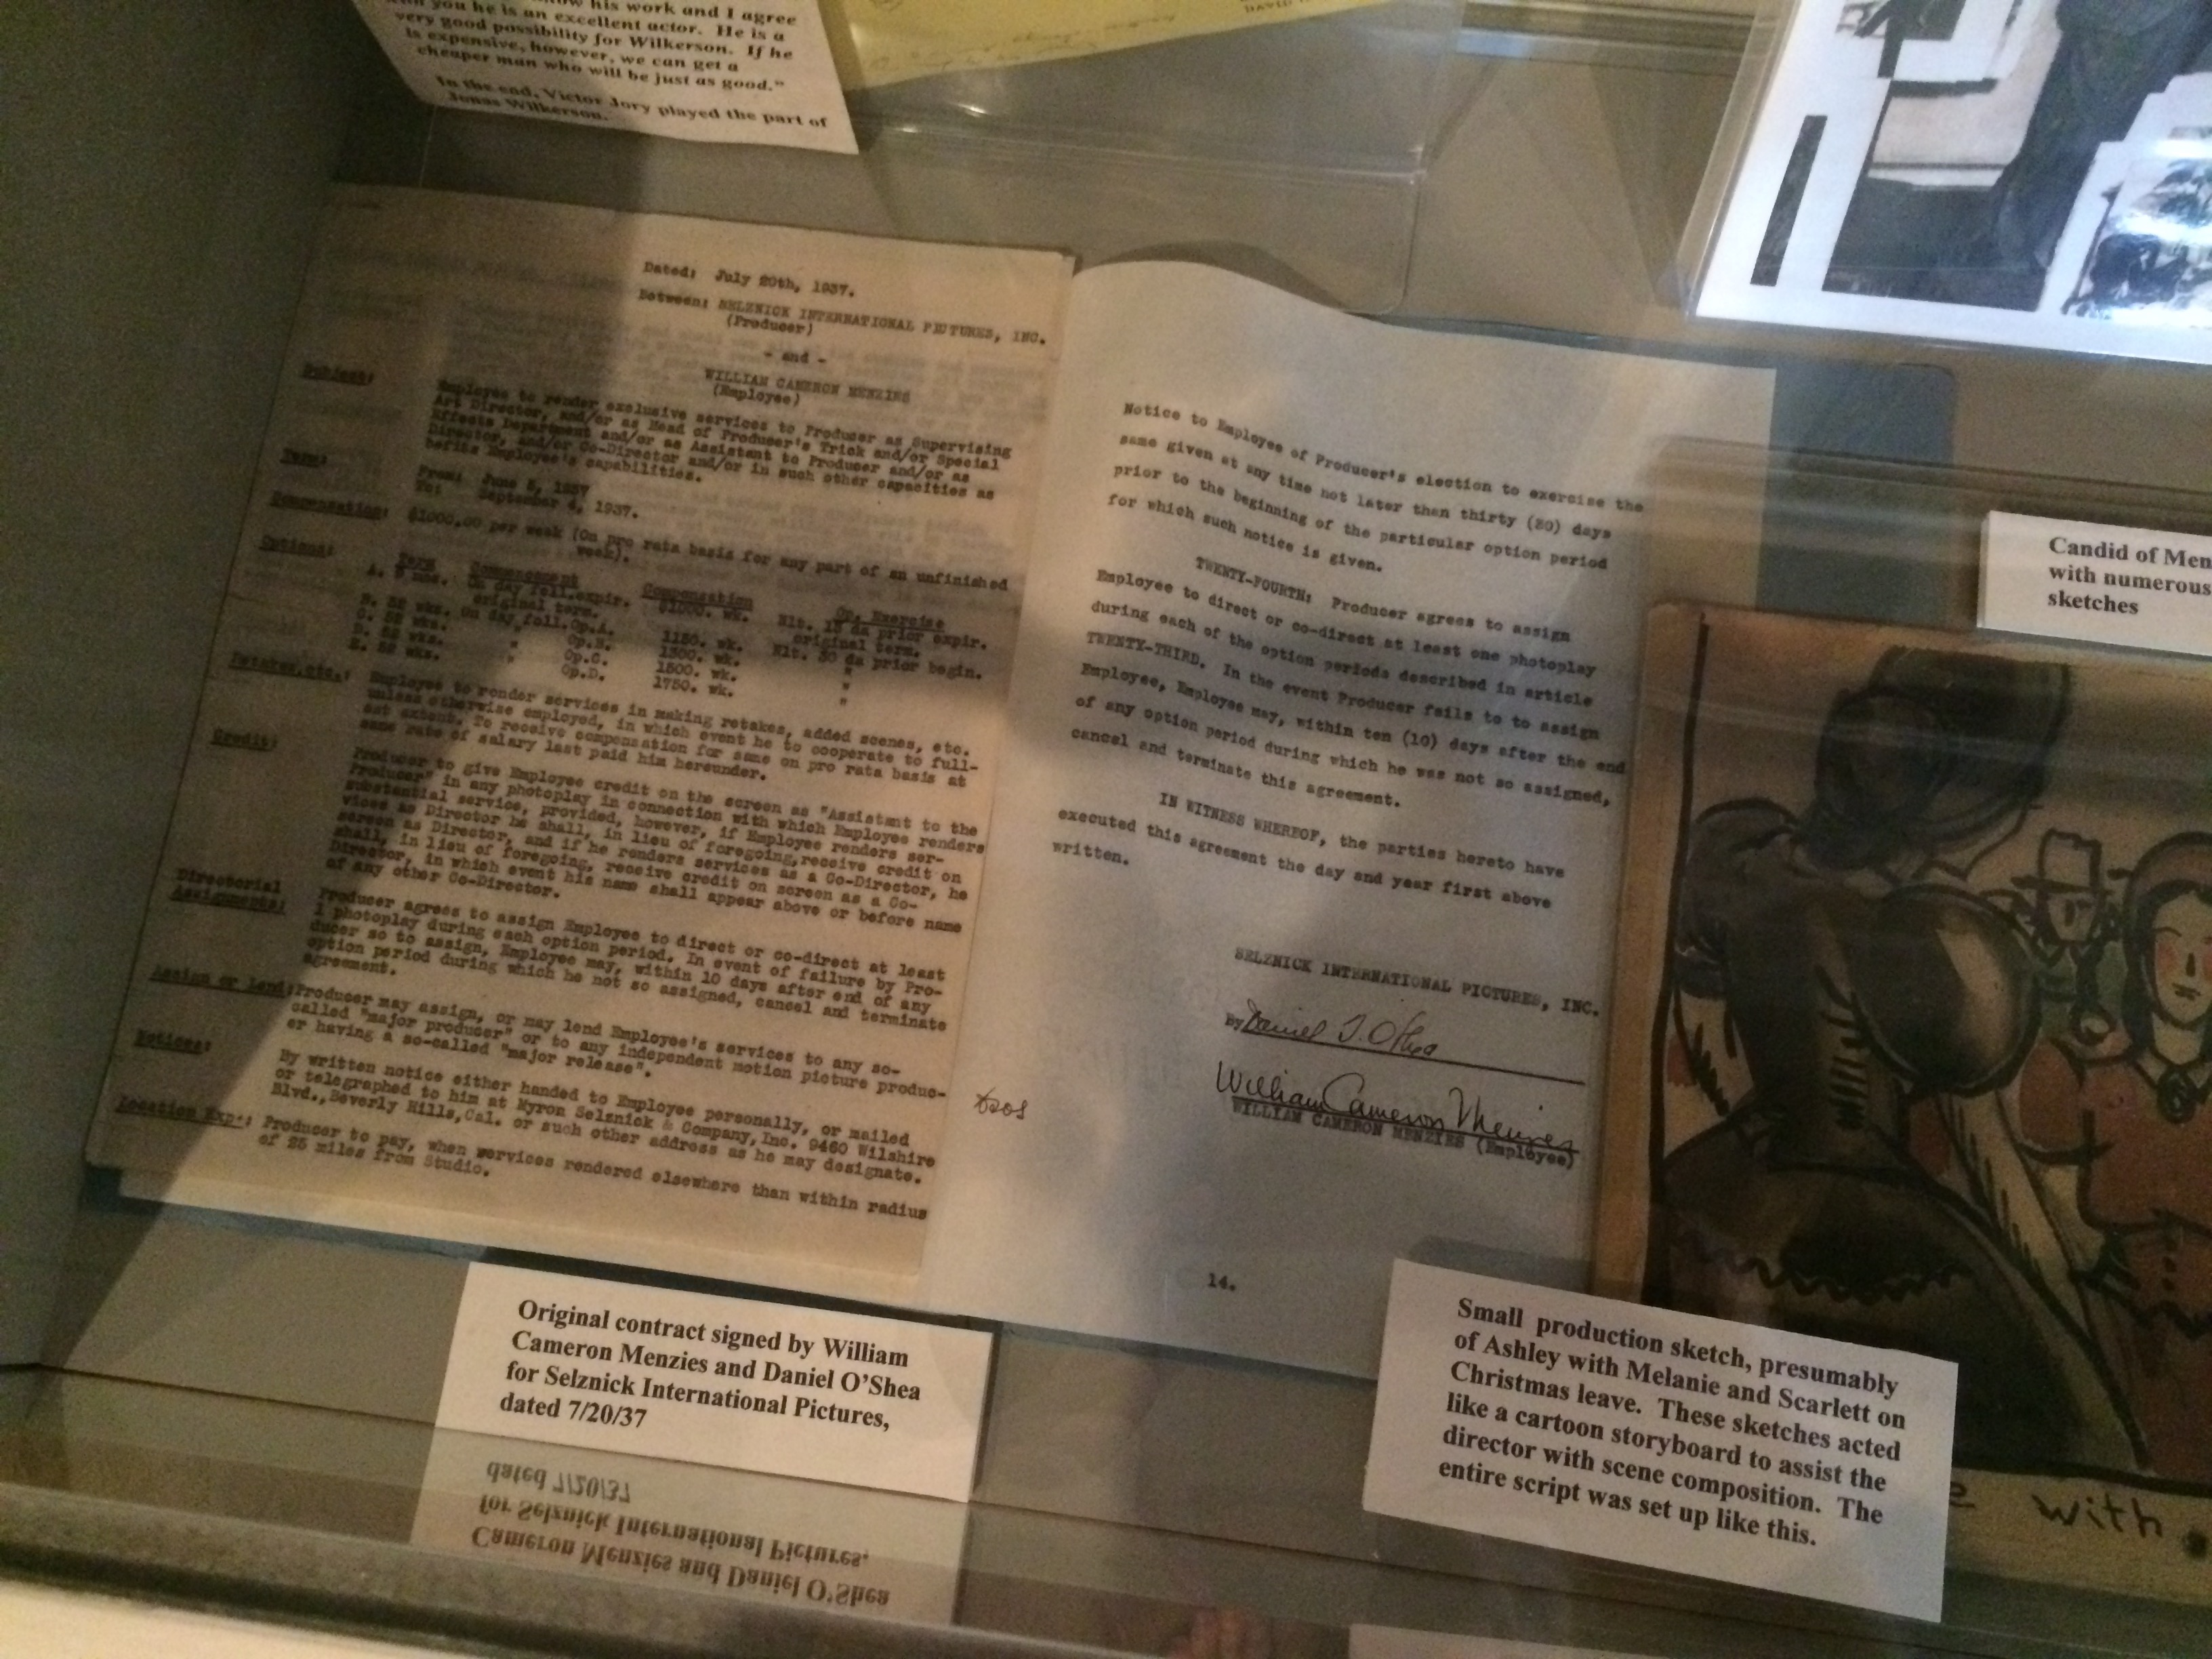 his work and I agree
you he is an excellent actor. He is a
very good possibility for Wilkerson. If he
is expensive, however, we can get a
cheaper man who will be just as good."
In the end, Victor Jory played the part of
Jonas Wilkerson.
Dated: July 20th, 1937.
Between: SELZNICK INTERNATIONAL PICTURES, INC.
(Producer)
- and -
WILLIAM CAMERON MENZIES
(Employee)
Subject: Employee to render exclusive services to Producer as Supervising
Art Director, and/or as Head of Producer's Trick and/or Special
Effects Department and/or as Assistant to Producer and/or as
Director, and/or Co-Director and/or in such other capacities as
befits Employee's capabilities.
Term: From: June 5, 1937
To: September 4, 1937.
Compensation: $1000.00 per week (On pro rata basis for any part of an unfinished
week).
Options: Term Commencement Compensation Op. Exercise
A. mos. On day foll.expir. $1000. wk. Nlt. 15 da prior expir.
original term. original term.
B. 52 wks. On day foll.Op.A. 1150. wk. Nlt. 30 da prior begin.
C. 52 wks. " Op.B. 1300. wk. "
D. 52 wks. " Op.C. 1500. wk. "
E. 52 wks. " Op.D. 1750. wk. "
Retakes,etc.: Employee to render services in making retakes, added scenes, etc.
unless otherwise employed, in which event he to cooperate to full-
est extent. To receive compensation for same on pro rata basis at
same rate of salary last paid him hereunder.
Credit: Producer to give Employee credit on the screen as "Assistant to the
Producer" in any photoplay in connection with which Employee renders
substantial service, provided, however, if Employee renders ser-
vices as Director he shall, in lieu of foregoing,receive credit on
screen as Director, and if he renders services as a Co-Director, he
shall, in lieu of foregoing, receive credit on screen as a Co-
Director, in which event his name shall appear above or before name
of any other Co-Director.
Directorial
Assignments: Producer agrees to assign Employee to direct or co-direct at least
1 photoplay during each option period. In event of failure by Pro-
ducer so to assign, Employee may, within 10 days after end of any
option period during which he not so assigned, cancel and terminate
agreement.
Assign or Lend: Producer may assign, or may lend Employee's services to any so-
called "major producer" or to any independent motion picture produc-
er having a so-called "major release".
Notices: By written notice either handed to Employee personally, or mailed
or telegraphed to him at Myron Selznick & Company,Inc. 9460 Wilshire
Blvd.,Beverly Hills,Cal. or such other address as he may designate.
Location Exp.: Producer to pay, when services rendered elsewhere than within radius
of 25 miles from Studio.
Notice to Employee of Producer's election to exercise the
same given at any time not later than thirty (30) days
prior to the beginning of the particular option period
for which such notice is given.
TWENTY-FOURTH: Producer agrees to assign
Employee to direct or co-direct at least one photoplay
during each of the option periods described in article
TWENTY-THIRD. In the event Producer fails to to assign
Employee, Employee may, within ten (10) days after the end
of any option period during which he was not so assigned,
cancel and terminate this agreement.
IN WITNESS WHEREOF, the parties hereto have
executed this agreement the day and year first above
written.
SELZNICK INTERNATIONAL PICTURES, INC.
By Daniel T. O'Shea
William Cameron Menzies
WILLIAM CAMERON MENZIES (Employee)
14.
Candid of Men
with numerous
sketches
Original contract signed by William
Cameron Menzies and Daniel O'Shea
for Selznick International Pictures,
dated 7/20/37
Small production sketch, presumably
of Ashley with Melanie and Scarlett on
Christmas leave. These sketches acted
like a cartoon storyboard to assist the
director with scene composition. The
entire script was set up like this.
with